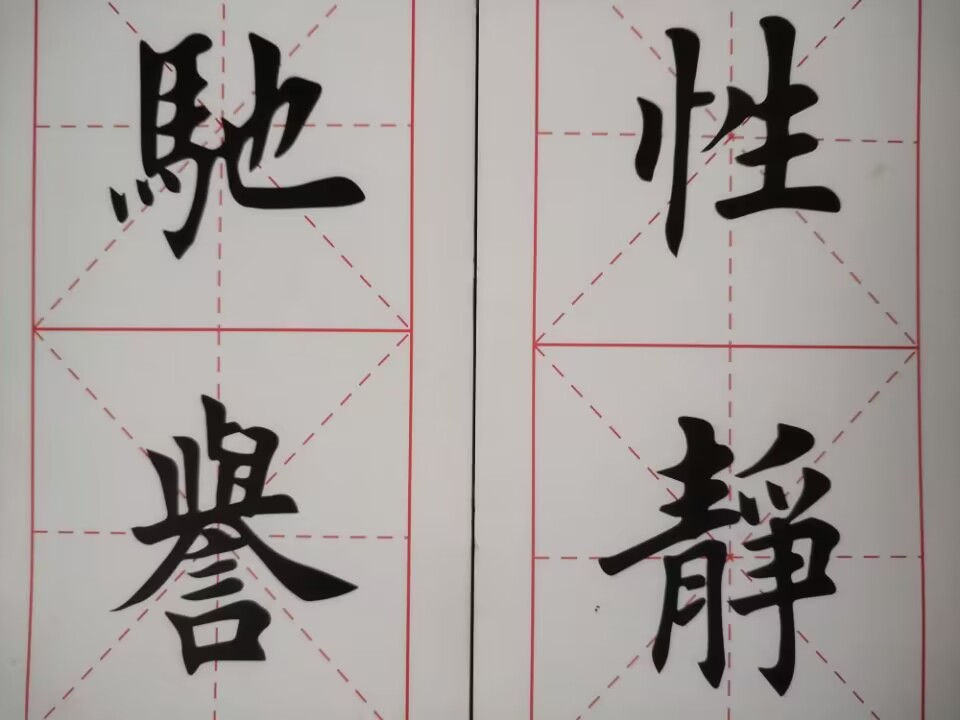 性靜
馳譽